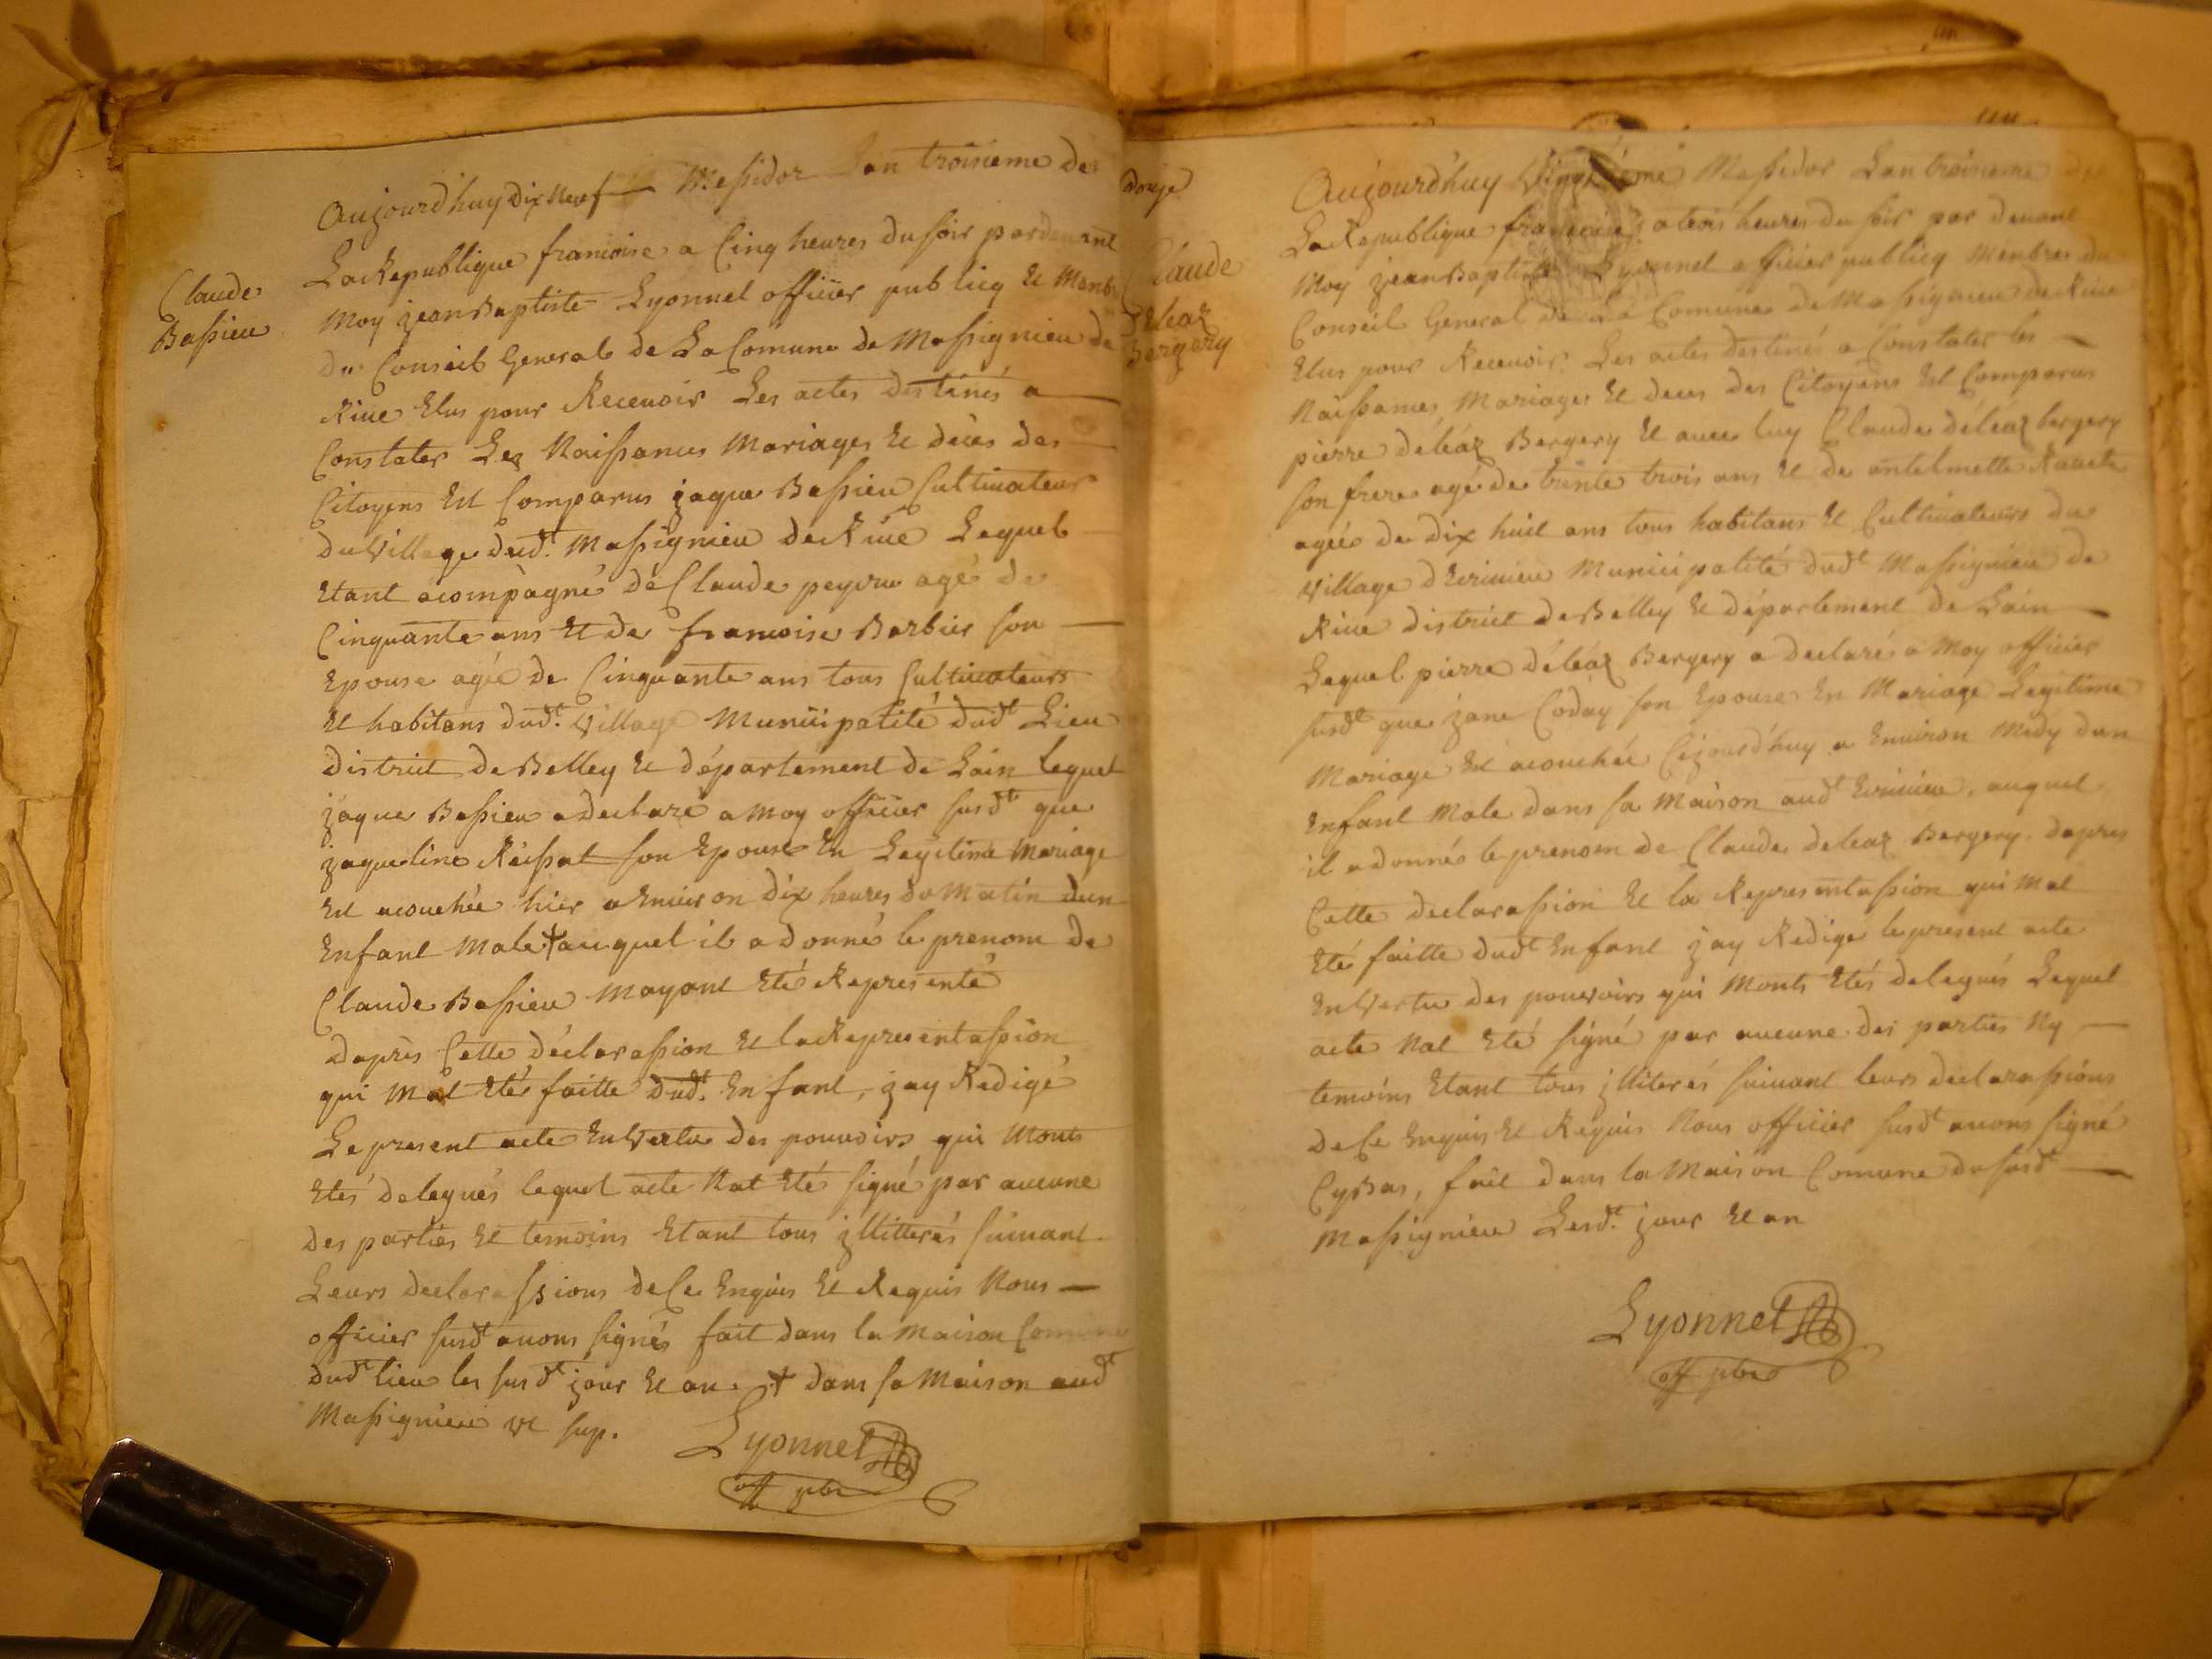 Claude
Bassieu
Aujourdhuy dix Neuf Messidor Lan troisieme de
La Republique francoise a Cinq heures du soir pardevant
Moy jean Baptiste Lyonnet officier publicq et Membre
du Conseil General de La Comune de Massignieu de
Rive Elus pour Recevoir Les actes destinés a
Constater Les Naissances Mariages et deces des
Citoyens Est Comparus jaque Bassieu Cultivateur
du Village dudt. Massignieu de Rive Lequel
Etant acompagné de Claude peyru agé de
Cinquante ans et de francoise Barbier son
Epouse agée de Cinquante ans tous Cultivateurs
et habitans dudt. village Municipalité dudt Lieu
district de Belley et département de Lain lequel
jaque Bassieu a declaré a Moy officier susdt que
jaqueline Reissat son Epouse En Legitime Mariage
Est acouchée hier a Environ dix heures du Matin dun
Enfant Male + auquel il a donné le prenom de
Claude Bassieu Mayant Eté Representé
dapres Cette déclarassion et la Representassion
qui Mat Eté faitte dudt. Enfant, jay Redigé
Le present acte En Vertu des pouvoirs qui Monts
Etés delegués lequel acte Nat Eté signé par aucune
des parties et temoins Etant tous jllitterés suivant
Leurs declarassions de Ce Enquis et Requis Nous
officier susdt avons signés fait dans la Maison Comune
dudt lieu les susdt jour et an. + dans sa Maison audt
Massignieu ut sup.
Lyonnet
off pbc
douze
Claude
déleaz
Bergery
Aujourdhuy Vingtieme Messidor Lan troisieme de
La Republique francoise a trois heures du soir par devant
Moy jean Baptiste Lyonnet officier publicq Membre du
Conseil General de La Comune de Massignieu de Rive
Elus pour Recevoir Les actes destinés a Constater les
Naissances Mariages et deces des Citoyens Est Comparus
pierre déléaz Bergery et avec luy Claude déléaz bergery
son frere agé de trente trois ans et de antelmette
agée de dix huit ans tous habitans et Cultivateurs du
village dEcrivieu Municipalité dudt Massignieu de
Rive district de Belley et département de Lain
Lequel pierre déléaz Bergery a declaré a Moy officier
susdt que jane Coday son Epouse En Mariage Legitime
Mariage Est acouchée Cejourdhuy a Environ Midy dun
Enfant Male dans sa Maison audt Ecrivieu, auquel
il a donné le prenom de Claude deleaz Bergery. dapres
Cette declarassion et la Representassion qui Mat
Eté faitte dudt Enfant jay Redigé le present acte
En Vertu des pouvoirs qui Monts Etés delegués Lequel
acte Nat Eté signé par aucune des parties Ny
temoins Etant tous jlliterés suivant leurs declarassions
de Ce Enquis et Requis Nous officier susdt avons signé
Cy Bas, fait dans la Maison Comune du susdt
Massignieu Lesdt. jour et an
Lyonnet
off pbc